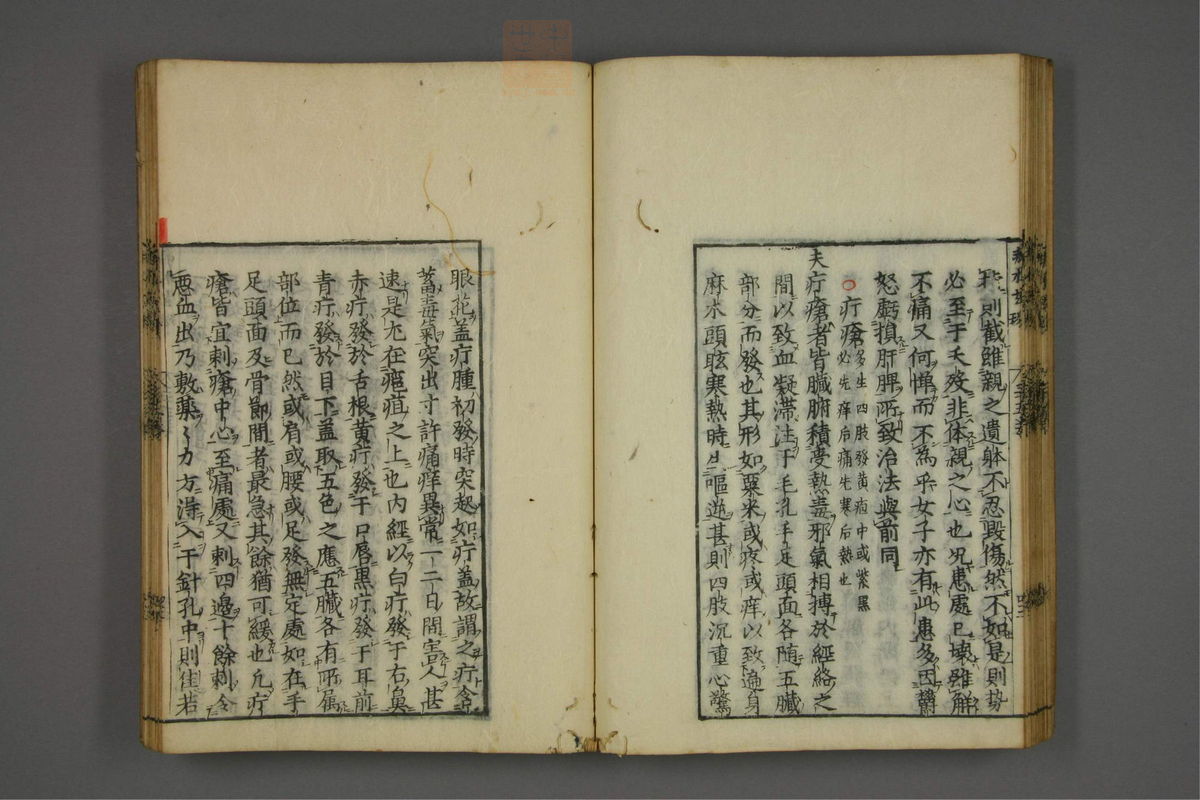 則截雖親之遺躰不忍毀傷然不如是則势
必至于夭歿非体親之心也况患處已壞雖解
不痛又何惮而不為乎女子亦有此患多因欝
怒虧損肝脾所致治法與前同
疔瘡多生四肢發黄疱中或紫黑
必先痒后痛先寒后熱也
夫疔瘡者皆臟腑積受熱毒邪氣相搏於經絡之
間以致血凝滞注于毛孔手足頭面各随五臟
部分而發也其形如粟米或疼或痒以致遍身
麻木頭眩寒熱時生嘔逆甚則四肢沉重心驚
眼花盖疔腫初發時突起如疔盖故謂之疔含
蓄毒氣突出寸許痛痒異常一二日間害人甚
速是尤在癰疽之上也内經以白疔發于右鼻
赤疔發於舌根黄疔發于口唇黒疔發于耳前
青疔發於目下盖取五色之應五臟各有所属
部位而已然或肩或腰或足發無定處如在手
足頭面及骨節間者最急其餘猶可緩也凢疔
瘡皆宜刺瘡中心至痛處又刺四邉十餘刺令
悪血出乃敷藥〻力方淂入于針孔中則佳若